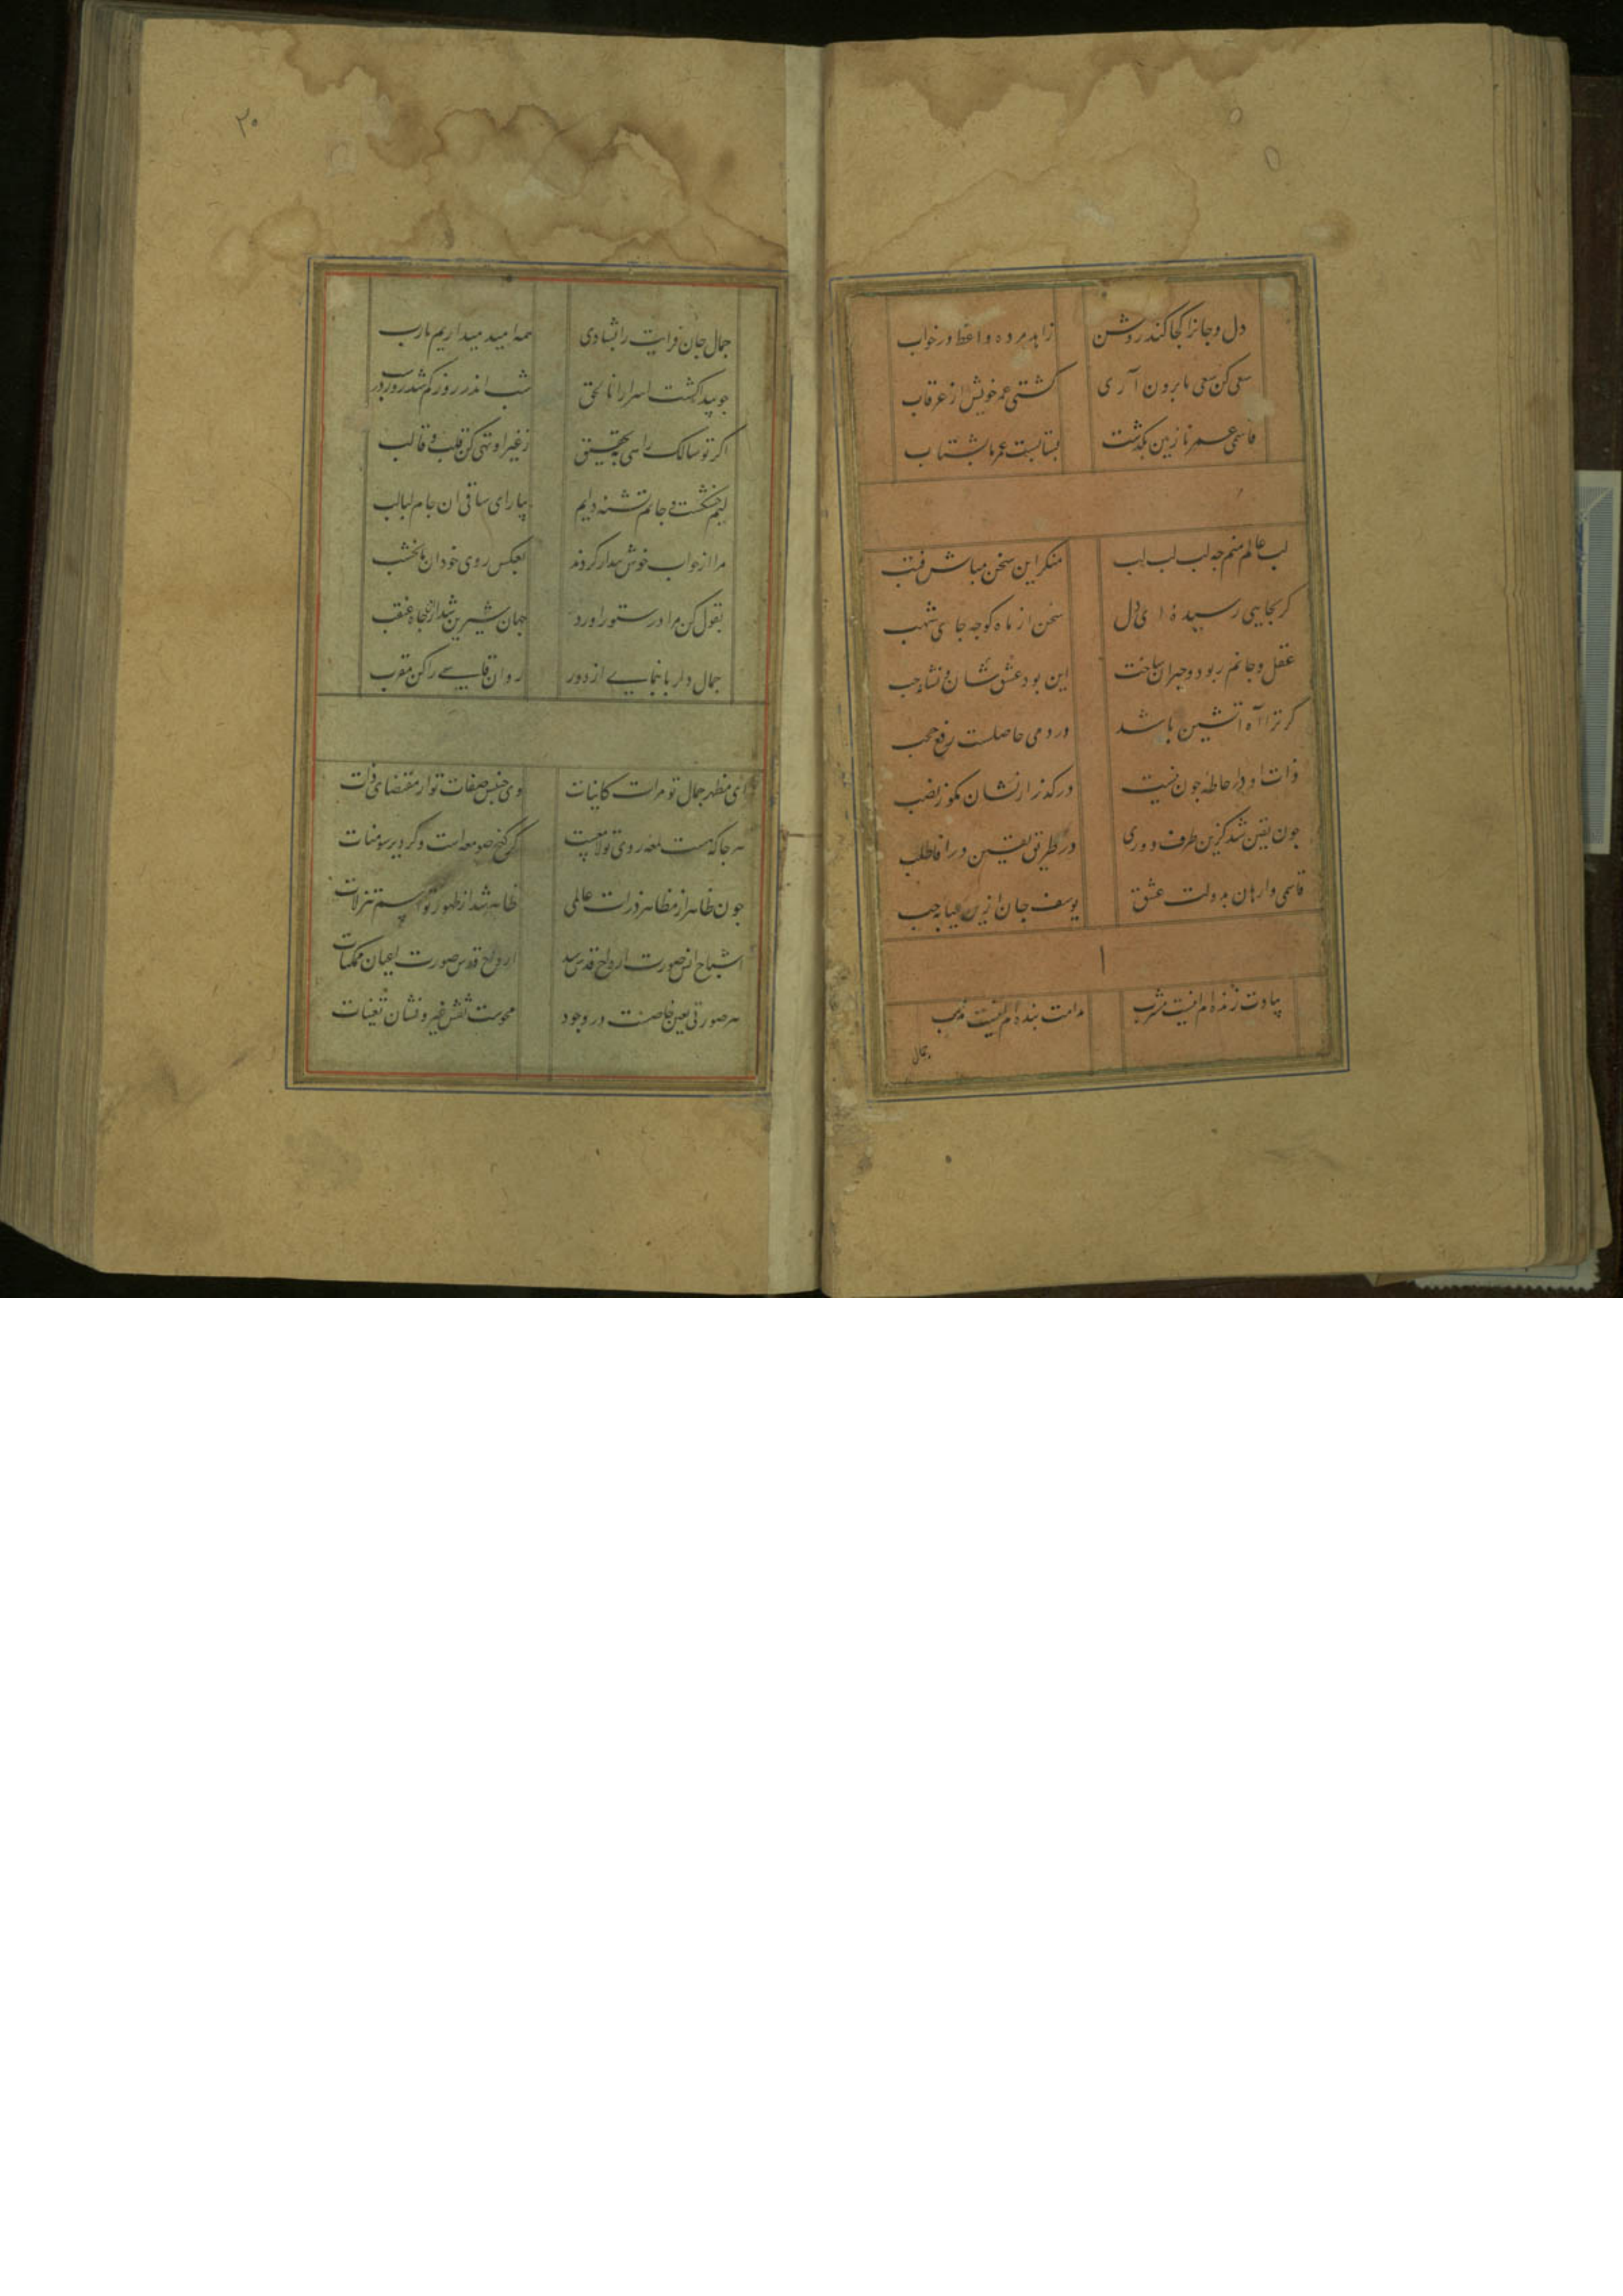 دل و جانرا کجا کند روشن زاهد مرده واعظ در خواب
سعی کن سعی تا برون آری کشتی عمر خویش از غرقاب
قاسمی عمر نازنین بگذشت بشتابست عمر ما بشتاب
لب عالم منم چه لب لب لب منکر این سخن مباش
گر بجایی رسیدهٔ ای دل سخن از ماه کو چه جای شهب
عقل و جانم ربود و حیران ساخت این بود عشق
گر ترا آه آتشین باشد در دمی حاصلست رفع حجب
ذات او در احاطه چون نیست درگذر از نشان مکو ز نصب
چون یقین شد کزین طرف دوری در طریق یقین درآ فاطلب
قاسمی وارهان بدولت عشق یوسف جان ازین غیابه جب
بیادت زنده‌ام اینست مشرب مدامت بنده‌ام اینست مذهب
جمال
۲۰
جمال جان فزایت را بشادی همه امید میداریم یارب
چو پیدا کشت اسرار اناالحق شب اندر روز کم شد روز در شب
اگر تو سالک راهی بتحقیق ز غیر او تهی کن قلب و قالب
لبم خشکست و جانم تشنه دایم بیار ای ساقی آن جام لبالب
مرا از خواب خوش بیدار کردند بعکس روی خود آن ماه نخشب
بقول کن مرا در ستور آورد جهان شیرین شد از آنجاه غبغب
جمال دلربا بنمایی از دور روان قاسمی را کن مقرب
ای مظهر جمال تو مرآت کاینات وی جنبش صفات تو از مقتضای ذات
هر جا که هست لمعه روی تو لامعست گر کنج صومعه است و گر دیر سومنات
چون ظاهر از مظاهر ذرات عالمی ظاهر شد از ظهور تو اسم تنزلات
اشباح انس صورت ارواح قدس شد ارواح قدس صورت اعیان ممکنات
هر صورتی تعین خاصست در وجود محوست نقش غیر و نشان تعینات